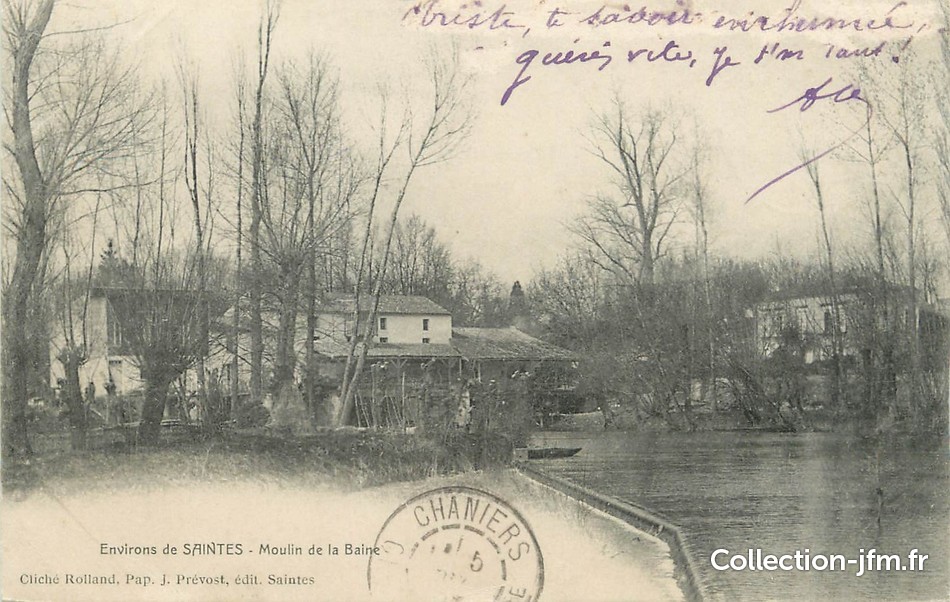 triste, te savoir enrhumée,
guéris vite, je t'm tant !
Environs de SAINTES - Moulin de la Baine
Cliché Rolland, Pap. J. Prévost, édit. Saintes
CHANIERS
5
Collection-jfm.fr